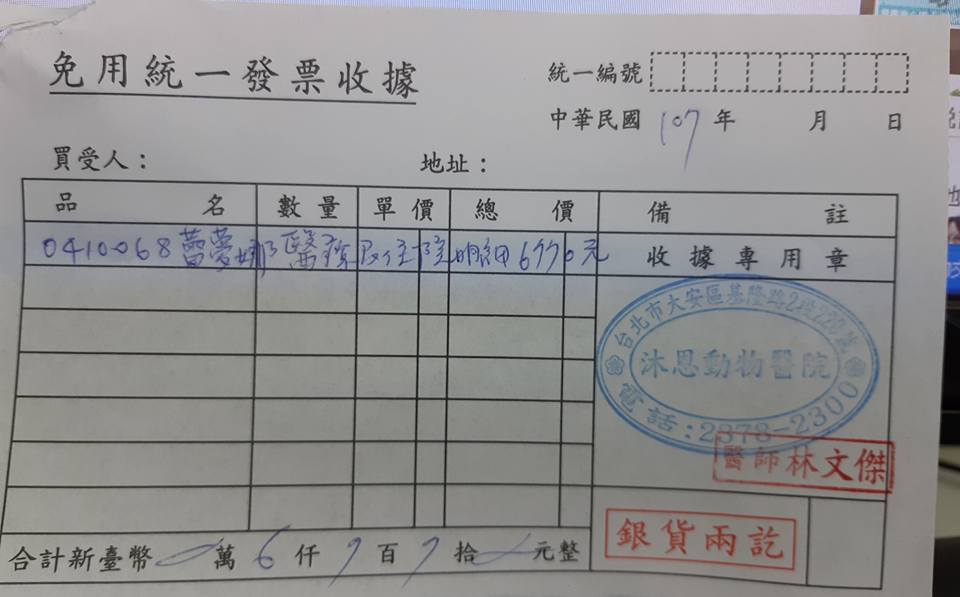 免用統一發票收據
統一編號
中華民國 107 年 月 日
買受人： 地址：
品名 數量 單價 總價 備註
0410-068 蕾夢娜 醫療及住院 明細 6770元 收據專用章
台北市大安區基隆路2段220號
沐恩動物醫院
電話：2378-2300
醫師林文傑
銀貨兩訖
合計新臺幣 萬 6 仟 7 百 7 拾 元整